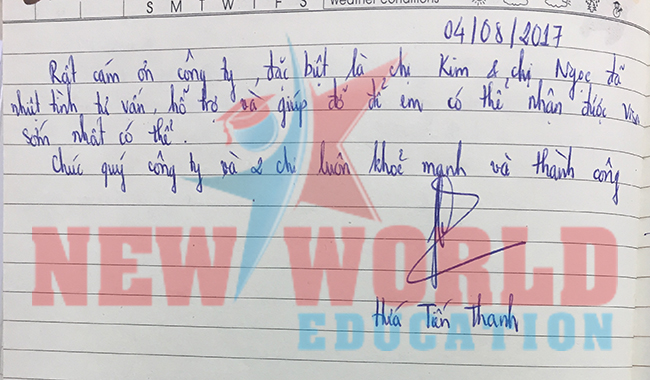 S M T W T F S Weather conditions
04/08/2017
Rất cám ơn công ty, đặc biệt là chị Kim & chị Ngọc đã
nhiệt tình tư vấn, hỗ trợ và giúp đỡ để em có thể nhận được visa
sớm nhất có thể.
Chúc quý công ty và 2 chị luôn khoẻ mạnh và thành công
NEW WORLD
EDUCATION
Hứa Tấn Thanh